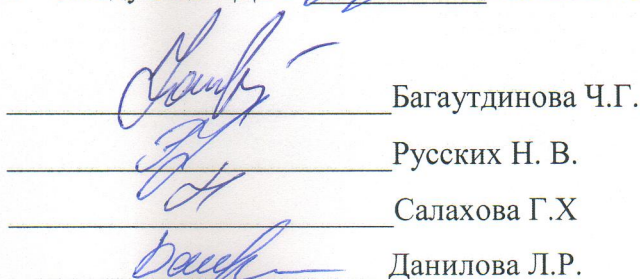 Багаутдинова Ч.Г.
Русских Н. В.
Салахова Г.Х
Данилова Л.Р.